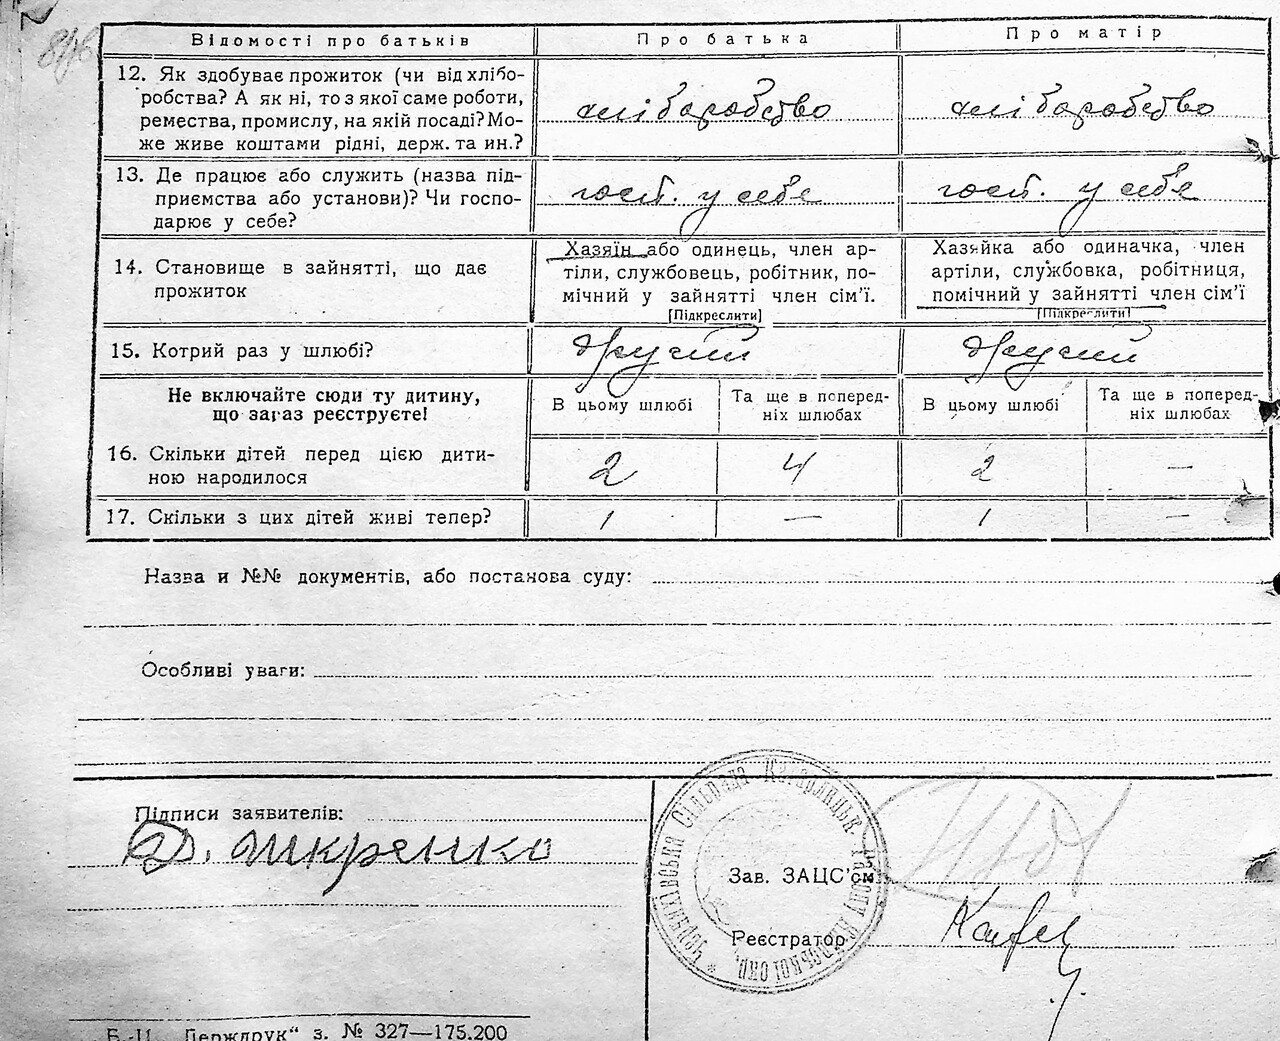 846
Відомості про батьків
Про батька
Про матір
12. Як здобуває прожиток (чи від хлібо-
робства? А як ні, то з якої саме роботи,
ремества, промислу, на якій посаді? Мо-
же живе коштами рідні, держ. та ин.?
хліборобство
хліборобство
13. Де працює або служить (назва під-
приємства або установи)? Чи госпо-
дарює у себе?
госп. у себе
госп. у себе
14. Становище в зайнятті, що дає
прожиток
Хазяїн або одинець, член ар-
тіли, службовець, робітник, по-
мічний у зайнятті член сім’ї.
[Підкреслити]
Хазяйка або одиначка, член
артіли, службовка, робітниця,
помічний у зайнятті член сім’ї
[Підкреслити]
15. Котрий раз у шлюбі?
другий
другий
Не включайте сюди ту дитину,
що зараз реєструєте!
В цьому шлюбі
Та ще в поперед-
ніх шлюбах
В цьому шлюбі
Та ще в поперед-
ніх шлюбах
16. Скільки дітей перед цією дити-
ною народилося
2
4
2
—
17. Скільки з цих дітей живі тепер?
1
—
1
—
Назва и №№ документів, або постанова суду:
Особливі уваги:
Підписи заявителів:
Д. Шкренко
Сільрада Кагарлицьк. Району Київської окр.
Зав. ЗАЦС’ом
Реєстратор
Б.-Ц. „Держдрук“ з. № 327—175.200